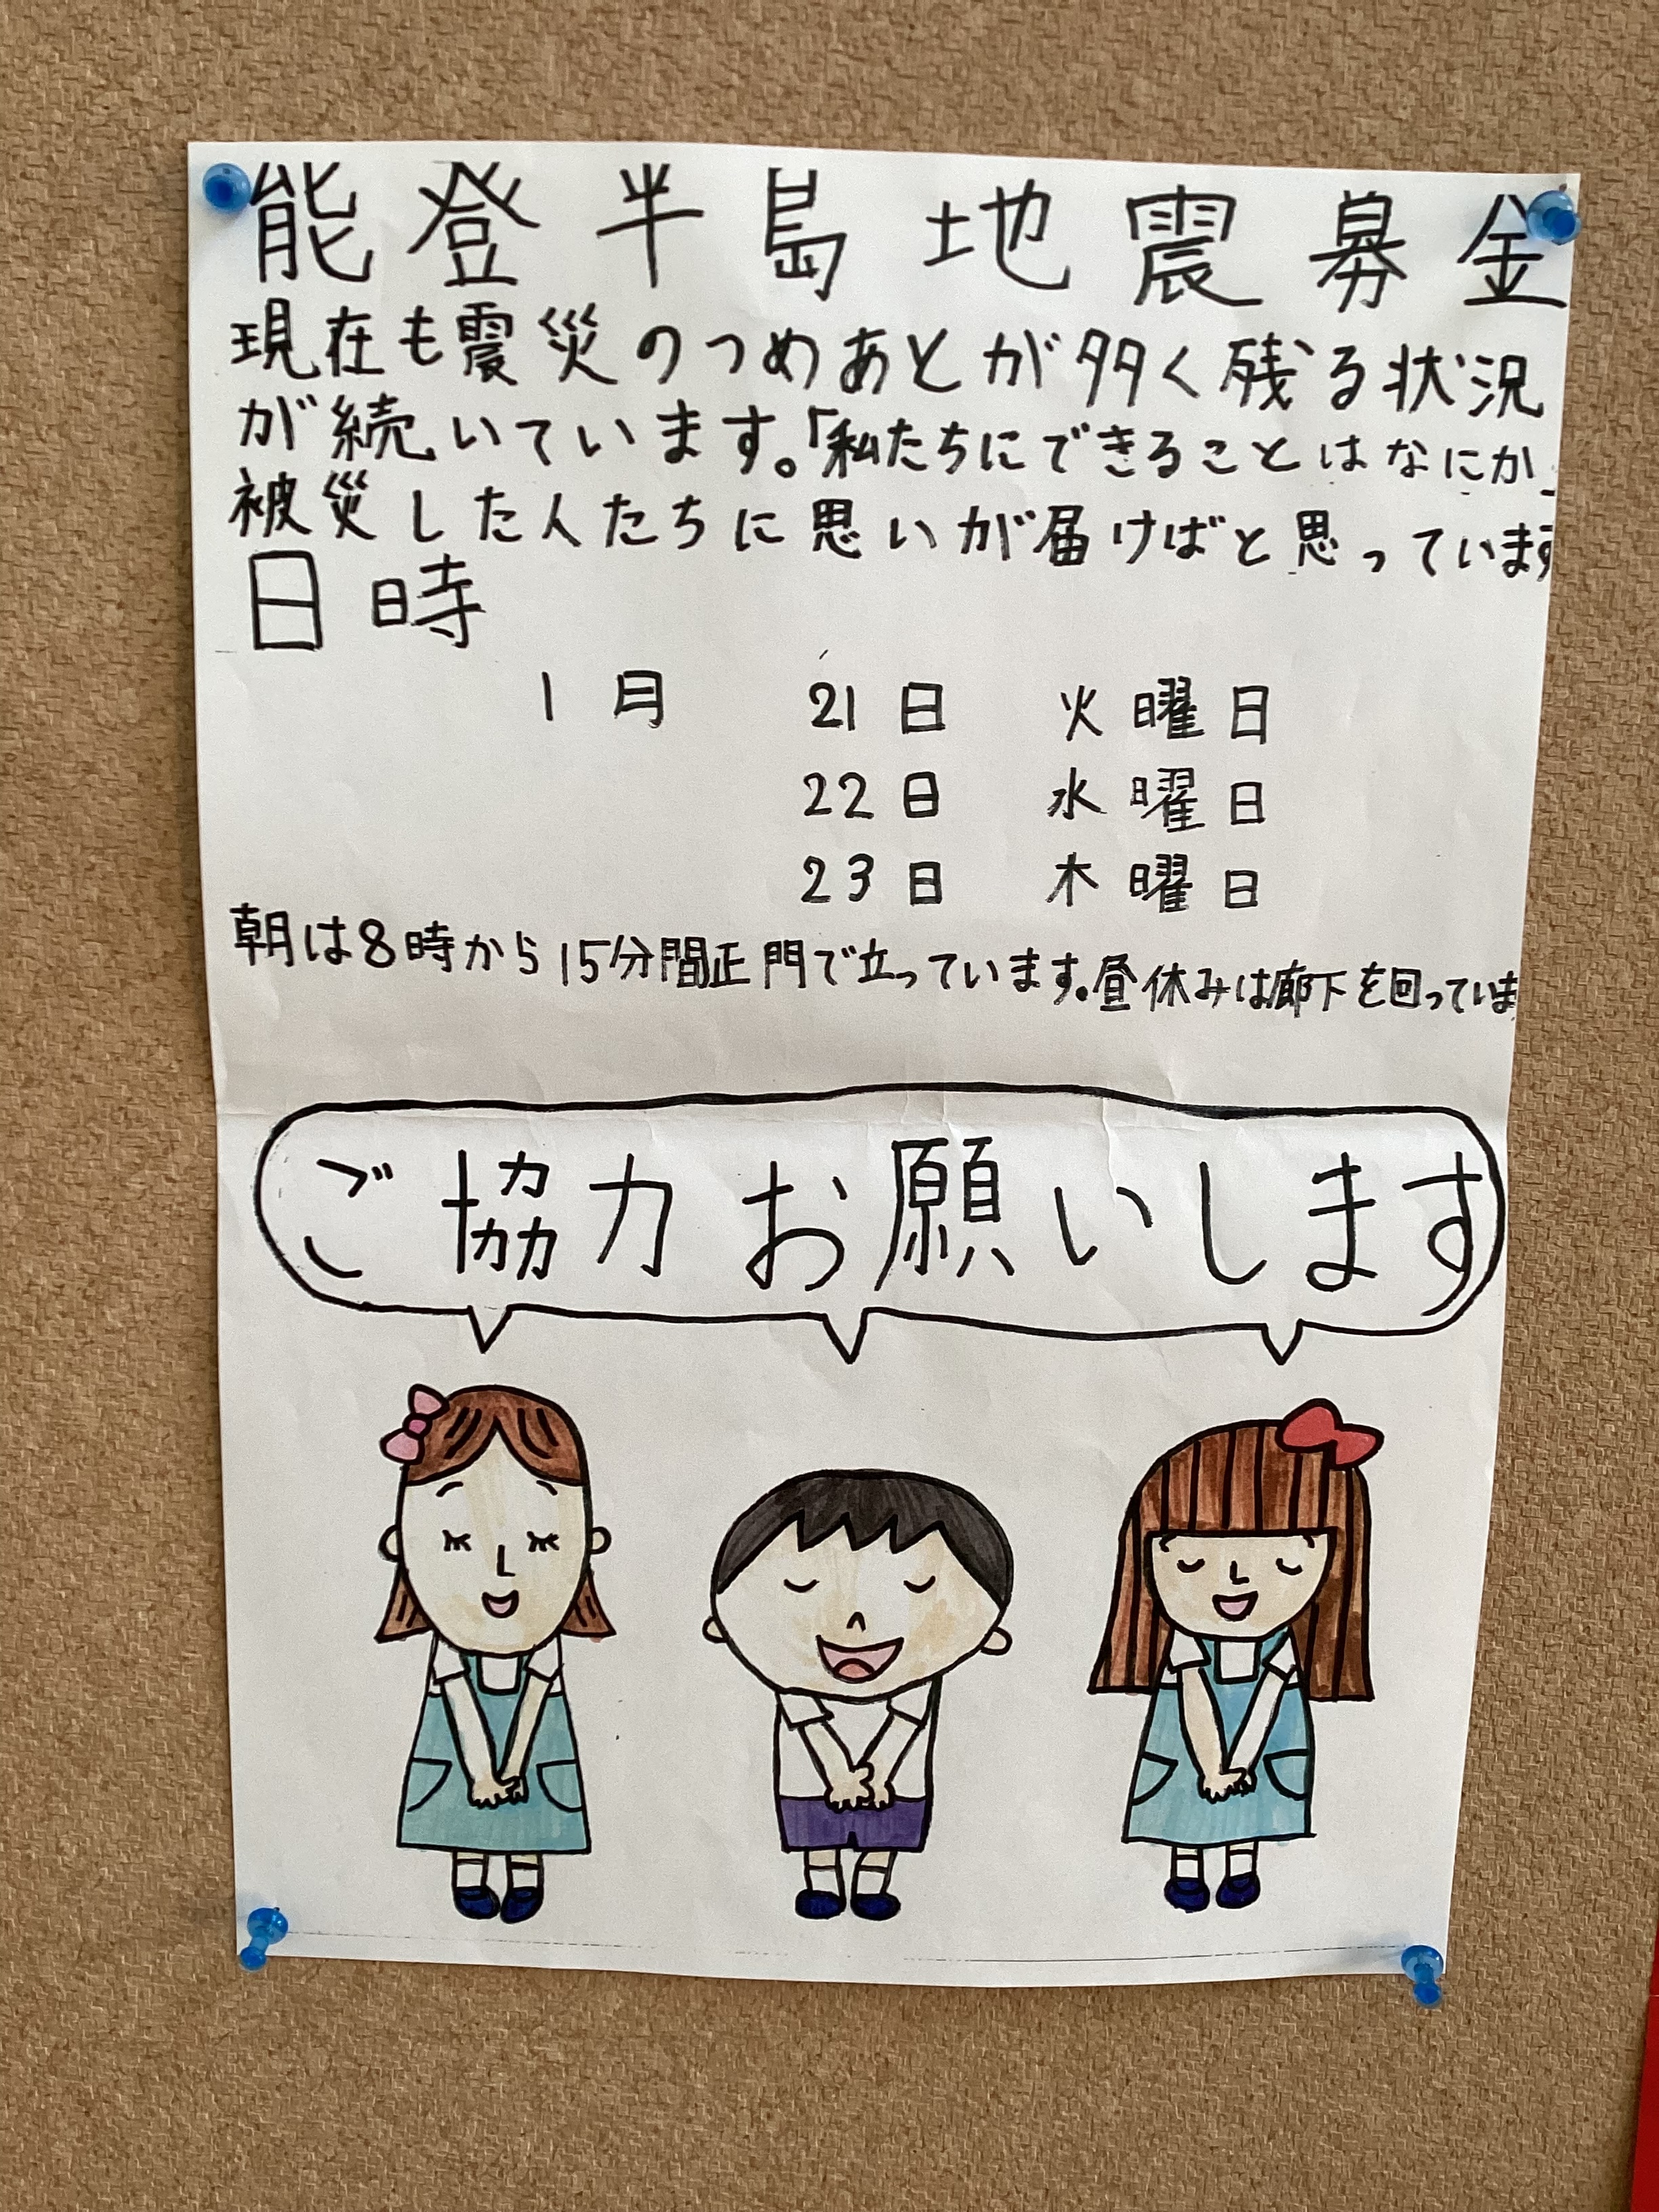 能登半島地震募金
現在も震災のつめあとが多く残る状況
が続いています。「私たちにできることはなにか」
被災した人たちに思いが届けばと思っています
日時
1月 21日 火曜日
22日 水曜日
23日 木曜日
朝は8時から15分間正門で立っています。昼休みは廊下を回っていま
ご協力お願いします